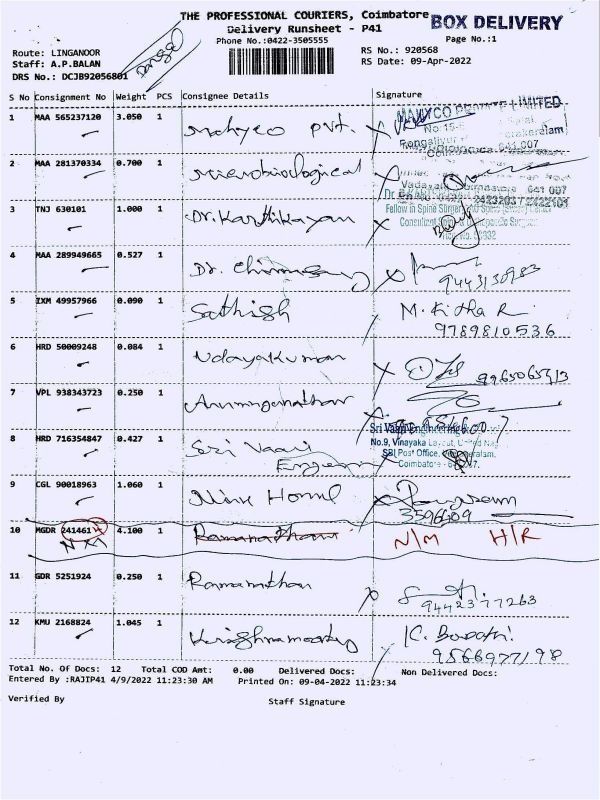 THE PROFESSIONAL COURIERS, Coimbatore
BOX DELIVERY
Delivery Runsheet - P41
Phone No.:0422-3505555
Page No.:1
Route: LINGANOOR
Staff: A.P.BALAN
DRS No.: DCJB92056801
RS No.: 920568
RS Date: 09-Apr-2022
S No Consignment No Weight PCS Consignee Details Signature
1 MAA 565237120 3.050 1 Mahyco pvt.
MAHYCO PRIVATE LIMITED
No:15-
641 007
2 MAA 281370334 0.700 1 Microbiological
Vadavalli, Coimbatore 641 007
3 TNJ 630101 1.000 1 Dr. Karthikayan
Fellow in Spine Surgery
4 MAA 289949665 0.527 1 Dr.
9443130983
5 IXM 49957966 0.090 1 Sathish M. Kitha R.
9789810536
6 HRD 50009248 0.084 1 Udayakumar
7 VPL 938343723 0.250 1 Arumuganathan
8 HRD 716354847 0.427 1 Sri Vaari
Sri Vaari Engineering
No.9, Vinayaka Layout, United Nagar
SBI Post Office,
Coimbatore
9 CGL 90018963 1.060 1 Nice Home
3596409
10 MGDR 241461 4.100 1 Ramanathan N/M H/R
N/M
11 GDR 5251924 0.250 1 Ramanathan
9442377263
12 KMU 2168824 1.045 1 Krishnamoorthy K. Barathi
9566977198
Total No. Of Docs: 12 Total COD Amt: 0.00 Delivered Docs: Non Delivered Docs:
Entered By :RAJIP41 4/9/2022 11:23:30 AM Printed On: 09-04-2022 11:23:34
Verified By Staff Signature